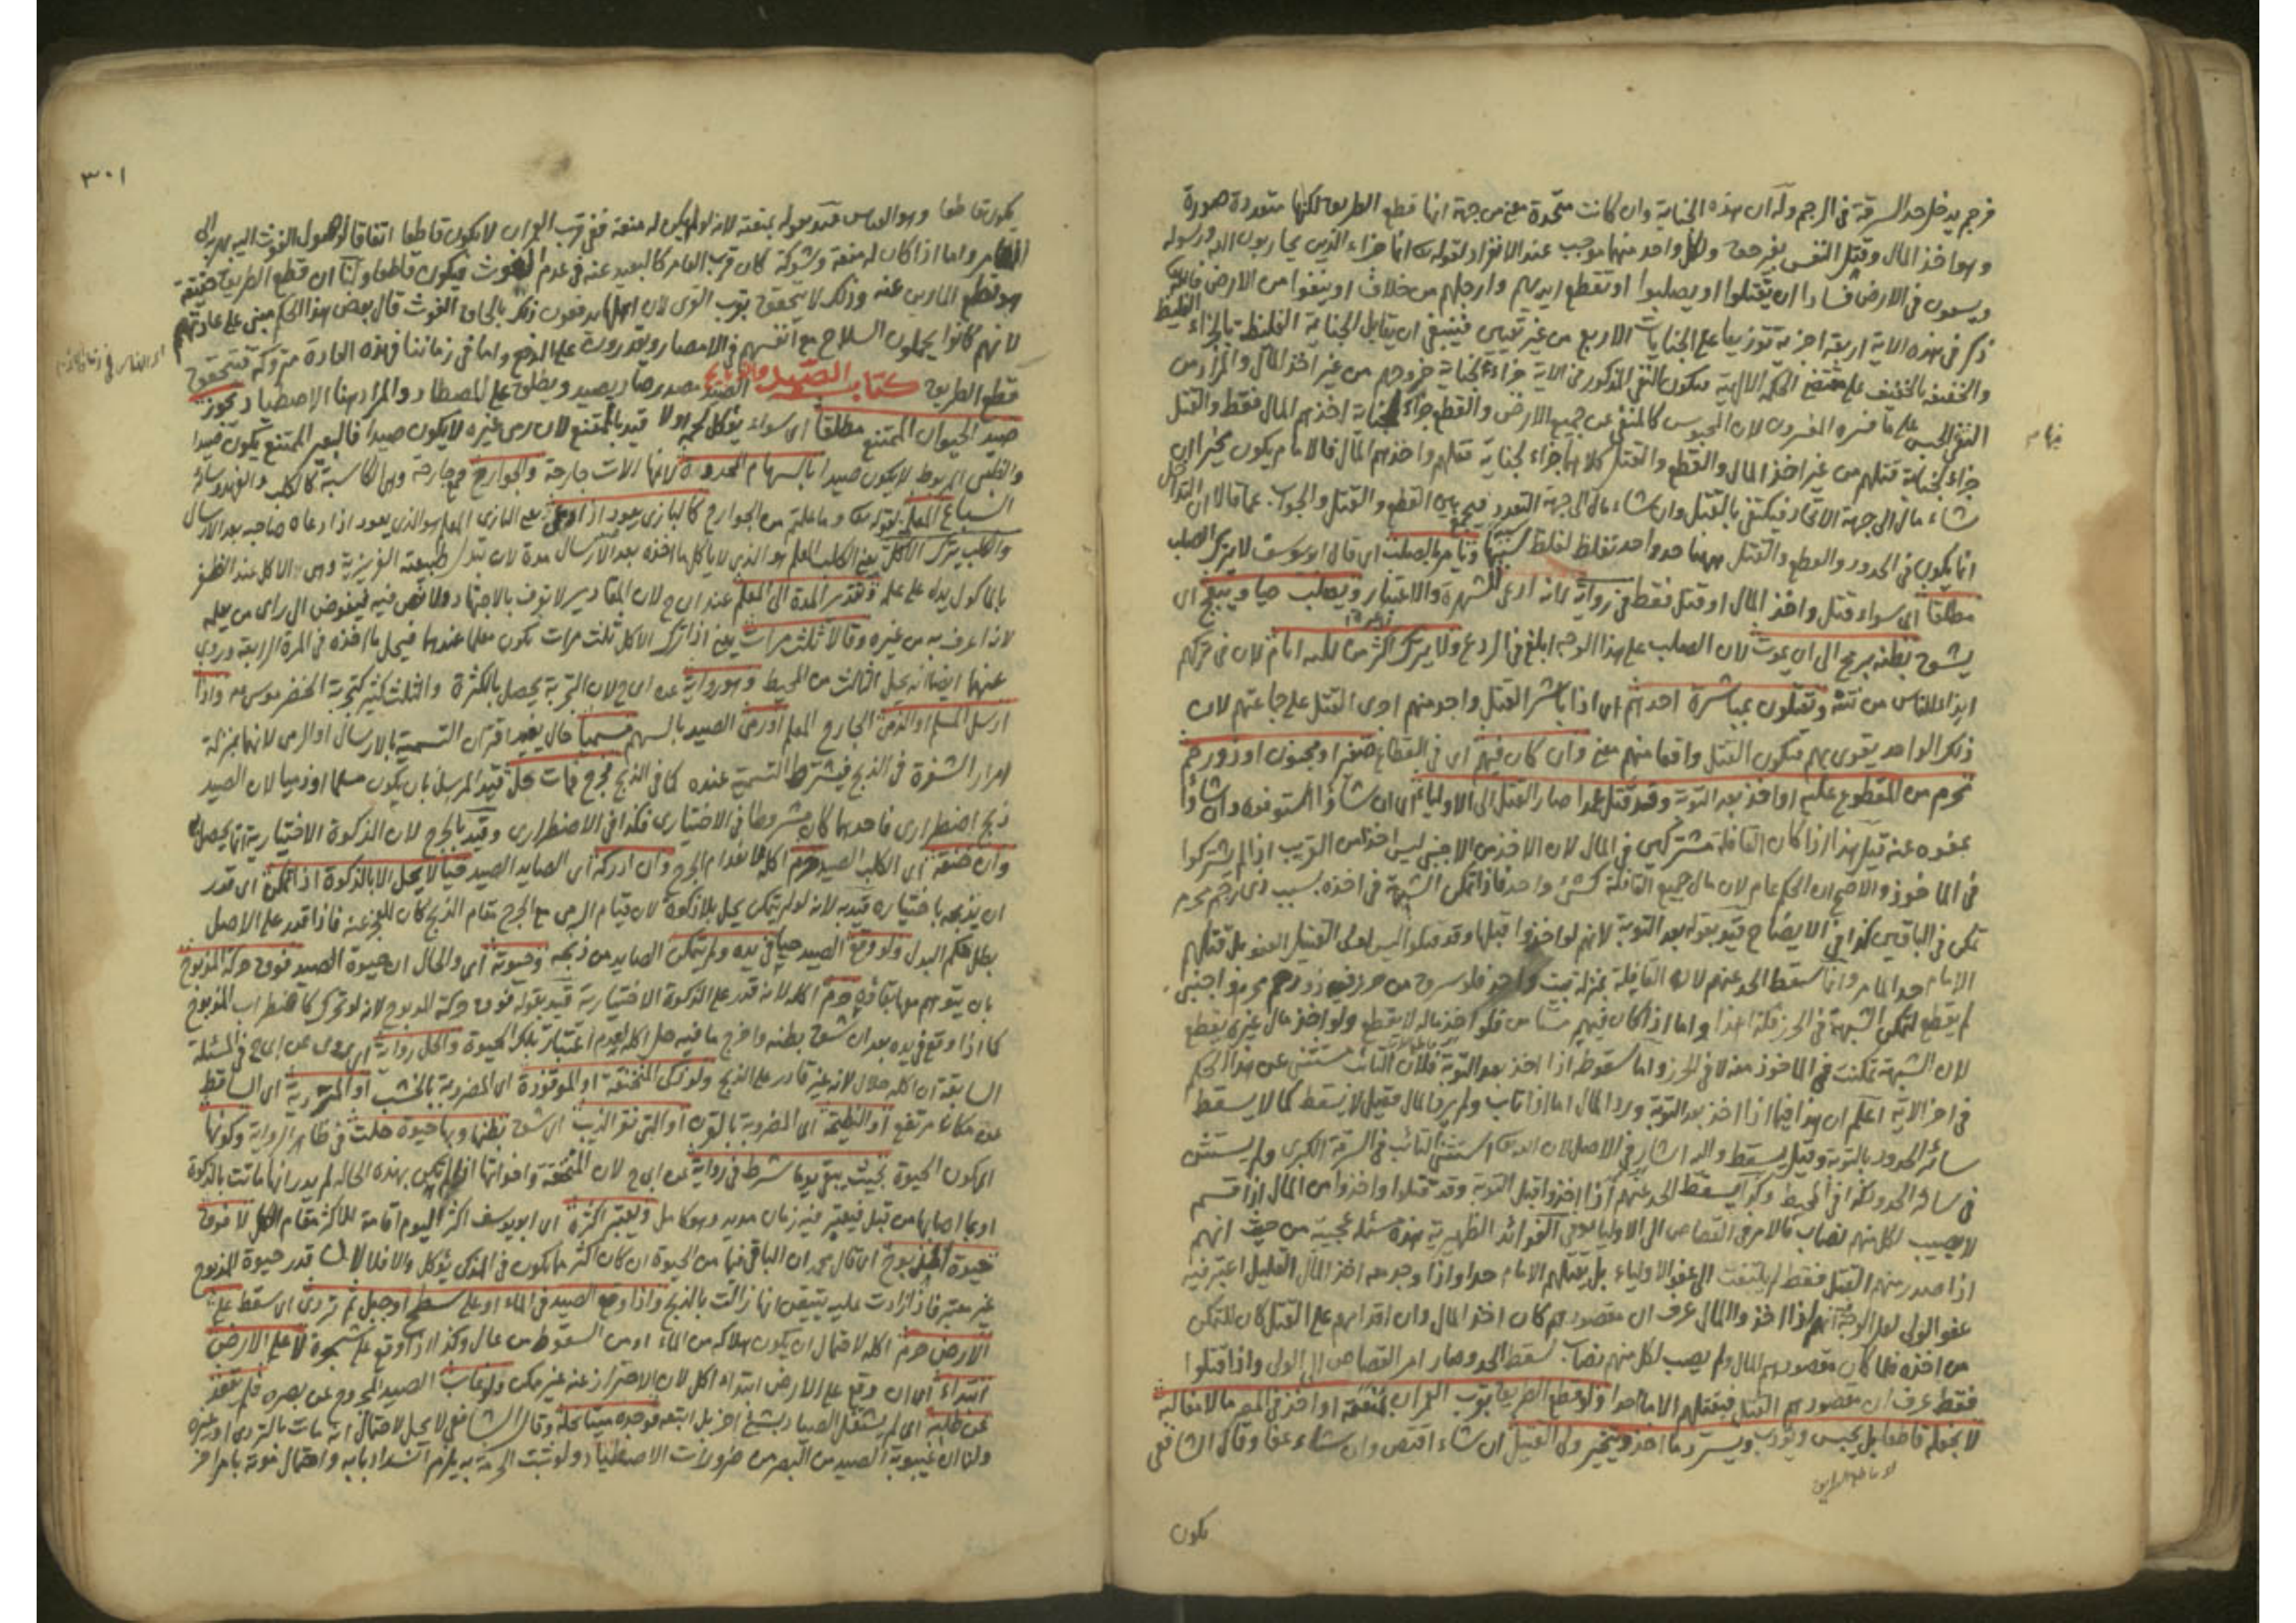 فرجم يدخل حد السرقة في الرجم وله ان هذه الجناية وان كانت متحدة معنى من جهة انها قطع الطريق لكنها متعددة صورة
وهو اخذ المال وقتل النفس بغير حق ولكل واحد منهما موجب عند الانفراد لقوله تعالى انما جزاء الذين يحاربون الله ورسوله
ويسعون في الارض فسادا ان يقتلوا او يصلبوا او تقطع ايديهم وارجلهم من خلاف او ينفوا من الارض
ذكر في هذه الاية اربعة اجزية توزيعا على الجنايات الاربع من غير تعيين فينبغي ان يقابل الجناية الغليظة بالجزاء الغليظ
والخفيفة بالخفيف على مقتضى الحكمة الالهية فيكون النفي المذكور في الاية جزاء لجناية خروجهم من غير اخذ المال والمراد من
النفي الحبس على ما فسره المفسرون لان المحبوس كالمنفي عن جميع الارض والقطع جزاء لجناية اخذهم المال فقط والقتل
جزاء لجناية قتلهم من غير اخذ المال والقطع والقتل كلاهما جزاء لجناية قتلهم واخذهم المال فالامام يكون مخيرا ان
شاء مال الى جهة الاتحاد فيكتفي بالقتل وان شاء مال الى جهة التعدد فيجمع بين القطع والقتل والجواب عما قالا ان التداخل
انما يكون في الحدود والقطع والقتل ههنا حد واحد تغلظ لغلظ سببها ويأمر بالصلب اي قال ابو يوسف لا يترك الصلب
مطلقا اي سواء قتل واخذ المال او قتل فقط في رواية لانه ادعى للشهرة والاعتبار ويصلب حيا ويبعج اي
يشق بطنه برمح الى ان يموت لان الصلب على هذا الوجه ابلغ في الردع ولا يترك اكثر من ثلثه ايام لان في تركهم
ايذاء للناس من نتنه وتقتلون بمباشرة احدهم اي اذا باشر القتل واحد منهم اجرى القتل على جماعتهم لان
ذلك الواحد يقوى بهم فيكون القتل واقعا منهم معنى وان كان فيهم اي في القطاع صغير او مجنون او ذو رحم
محرم من المقطوع عليه او اخذ بعد التوبة وقد قتل عمدا صار القتل الى الاولياء اي ان شاؤا استوفوه وان شاؤا
عفوه عنه قيل هذا اذا كان القافلة مشتركين في المال لان الاخذ من الاجنبي ليس اخذا من القريب اذا لم يشتركوا
في الماخوذ والاصح ان الحكم عام لان مال جميع القافلة كشئ واحد فاذا تمكن الشبهة في اخذه بسبب ذي رحم محرم
تمكن في الباقين كذا في الايضاح قيد بقوله بعد التوبة لانهم لو اخذوا قبلها وقد قتلوا ليس لولي القتيل العفو بل قتلهم
الامام حدا لما مر وانما سقط الحد عنهم لان القافلة بمنزلة بيت واحد فلو سرق من حرز فيه ذو رحم محرم واجنبي
لم يقطع لتمكن الشبهة في الحرز فكذا هذا واما اذا كان فيهم مستأمن فلو اخذ ماله لا يقطع ولو اخذ مال غيره يقطع
لان الشبهة تمكنت في الماخوذ منه لا في الحرز واما سقوطه اذا اخذ بعد التوبة فلان التائب مستثنى عن هذا الحكم
في اخر الاية اعلم ان هذا فيما اذا اخذ بعد التوبة ورد المال اما اذا تاب ولم يرد المال فقيل لا يسقط كما لا يسقط
سائر الحدود بالتوبة وقيل يسقط واليه اشار في الاصل لان الله تعالى استثنى التائب في السرقة الكبرى ولم يستثن
في سائر الحدود كذا في المحيط وكذا يسقط الحد عنهم اذا اخذوا قبل التوبة وقد قتلوا واخذوا من المال اذا قسم
لا يصيب لكل منهم نصاب فالامر في القصاص الى الاولياء وفي الفوائد الظهيرية هذه مسئلة عجيبة من حيث انهم
اذا صدر منهم القتل فقط لم يلتفت الى عفو الاولياء بل يقتلهم الامام حدا واذا وجد معه اخذ المال القليل اعتبر فيه
عفو الولي لعل الوجه انهم لو اخذوا المال عرف ان مقصودهم كان اخذ المال وان اقدامهم على القتل كان للتمكن
من اخذه فلما كان مقصودهم المال ولم يصب لكل منهم نصاب سقط الحد وصار امر القصاص الى الولي واذا قتلوا
فقط عرف ان مقصودهم القتل فيقتلهم الامام حدا ولو قطع الطريق بقرب العمران بمنعة او اخذ في المصر مالا مغالبة
لا نجعله قاطعا بل يحبس ويؤدب ويسترد ما اخذ ويتخير ولي القتيل ان شاء اقتص وان شاء عفا وقال الشافعي
يكون
٣٠١
يكون قاطعا وهو القياس قيد بقوله بمنعة لانه لو لم يكن له منعة ففي قرب العمران لا يكون قاطعا اتفاقا لوصول الغوث اليه
واما اذا كان له منعة وشوكة كان قرب العامر كالبعيد عنه في عدم الغوث فيكون قاطعا ولنا ان قطع الطريق حقيقة
هو قطع المارين عنه وذلك لا يتحقق بقرب القرى لان اهلها يدفعون ذلك بالحاق الغوث قال بعض هذا الحكم مبني على عادتهم
لانهم كانوا يحملون السلاح مع انفسهم في الامصار ويقدرون على الدفع واما في زماننا فهذه العادة متروكة فتتحقق
قطع الطريق كتاب الصيد والذبائح الصيد مصدر صاد يصيد ويطلق على المصطاد والمراد هنا الاصطياد يجوز
صيد الحيوان الممتنع مطلقا اي سواء يؤكل لحمه او لا قيد بالممتنع لان رمى غيره لا يكون صيدا فالبعير الممتنع يكون صيدا
والظبي المربوط لا يكون صيدا بالسهام المحدودة لانها الات جارحة والجوارح جمع جارحة وهي الكاسبة كالكلب والفهد وسائر
السباع المعلم لقوله تعالى وما علمتم من الجوارح كالبازي يعود اذا دعى يعني البازي المعلم هو الذي يعود اذا دعاه صاحبه بعد الارسال
والكلب يترك الاكل يعني الكلب المعلم هو الذي لا يأكل ما اخذه بعد الارسال مدة لان تبدل طبيعته الغريزية وهي الاكل عند الظفر
بالماكول يدل على علمه وتقدير المدة الى المعلم عند ابي ح لان المقادير لا تعرف بالاجتهاد ولا نص فيه فيفوض الى رأى من يعلمه
لانه اعرف به من غيره وقالا ثلث مرات يعني اذا ترك الاكل ثلث مرات يكون معلما عندهما فيحل ما اخذه في المرة الرابعة وروي
عنهما ايضا انه يحل الثالث من المحيط وهو رواية عن ابي ح لان التجربة يحصل بالكثرة والثلث كثير كتجربة الخضر موسى عم واذا
ارسل المسلم او الذمي الجارح المعلم او رمى الصيد بالسهم مسميا حال يفيد اقتران التسمية بالارسال او الرمي لانهما بمنزلة
امرار الشفرة في الذبح فيشترط التسمية عنده كما في الذبح فجرح فمات يحل قيد المرسل بان يكون مسلما او ذميا لان الصيد
ذبح اضطراري فاحدهما كان مشروطا في الاختياري فكذا في الاضطراري وقيد بالجرح لان الذكوة الاختيارية انما يحصل به
وان خنقه اي الكلب الصيد حرم اكله لانعدام الجرح وان ادركه اي الصايد الصيد حيا لا يحل الا بالذكوة اذا تمكن اي قدر
ان يذبحه باختياره قيد به لانه لو لم يتمكن يحل بلا ذكوة لان قيام الرمي مع الجرح مقام الذبح كان للعجز عنه فاذا قدر على الاصل
بطل حكم البدل ولو وقع الصيد حيا في يده ولم يتمكن الصايد من ذبحه وحيوته اي والحال ان حيوة الصيد فوق حركة المذبوح
بان يتوهم معها بقاؤه حرم اكله لانه قدر على الذكوة الاختيارية قيد بقوله فوق حركة المذبوح لانه لو تحرك كاضطراب المذبوح
كما اذا وقع في يده بعد ان شق بطنه واخرج ما فيه حل اكله لعدم اعتبار تلك الحيوة والحل رواية اي روى عن ابي ح في المسئلة
السابقة ان اكله حلال لانه غير قادر على الذبح ولو ذكى المنخنقة او الموقوذة اي المضروبة بالخشب او المتردية اي الساقط
عن مكان مرتفع او النطيحة اي المضروبة بالقرن او التي بقر الذئب اي شق بطنها وبها حيوة حلت في ظاهر الرواية وكونها
اي كون الحيوة بحيث يبقى يوما شرط في رواية عن ابي ح لان المنخنقة واخواتها اذا لم يكن بهذه الحالة لم يدر انها ماتت بالذكوة
او بما اصابها من قبل فيعتبر فيه زمان مديد وهو كامل ويعتبر اكثره اي ابو يوسف اكثر اليوم اقامة للاكثر مقام الكل لا فوق
حيوة المذبوح اي قال محمد ان الباقي فيها من الحيوة ان كان اكثر مما يكون في المذكى يؤكل والا فلا لان قدر حيوة المذبوح
غير معتبر فاذا زادت عليه يتيقن انها زالت بالذبح واذا وقع الصيد في الماء او على سطح او جبل ثم تردى اي سقط على
الارض حرم اكله لاحتمال ان يكون هلاكه من الماء او من السقوط من عال وكذا اذا وقع على شجرة لا على الارض
ابتداء اي ان وقع على الارض ابتداء اكل لان الاحتراز عنه غير ممكن ولو غاب الصيد المجروح عن بصره فلم يقعد
عن طلبه اي لم يشتغل الصياد بشئ اخر بل اتبعه فوجده ميتا يحل وقال الشافعي لا يحل لاحتمال انه مات بالتردي او غيره
ولنا ان غيبوبة الصيد من البصر من ضرورات الاصطياد ولو ثبت الحرمة به يلزم انسداد بابه واحتمال موته بامر اخر